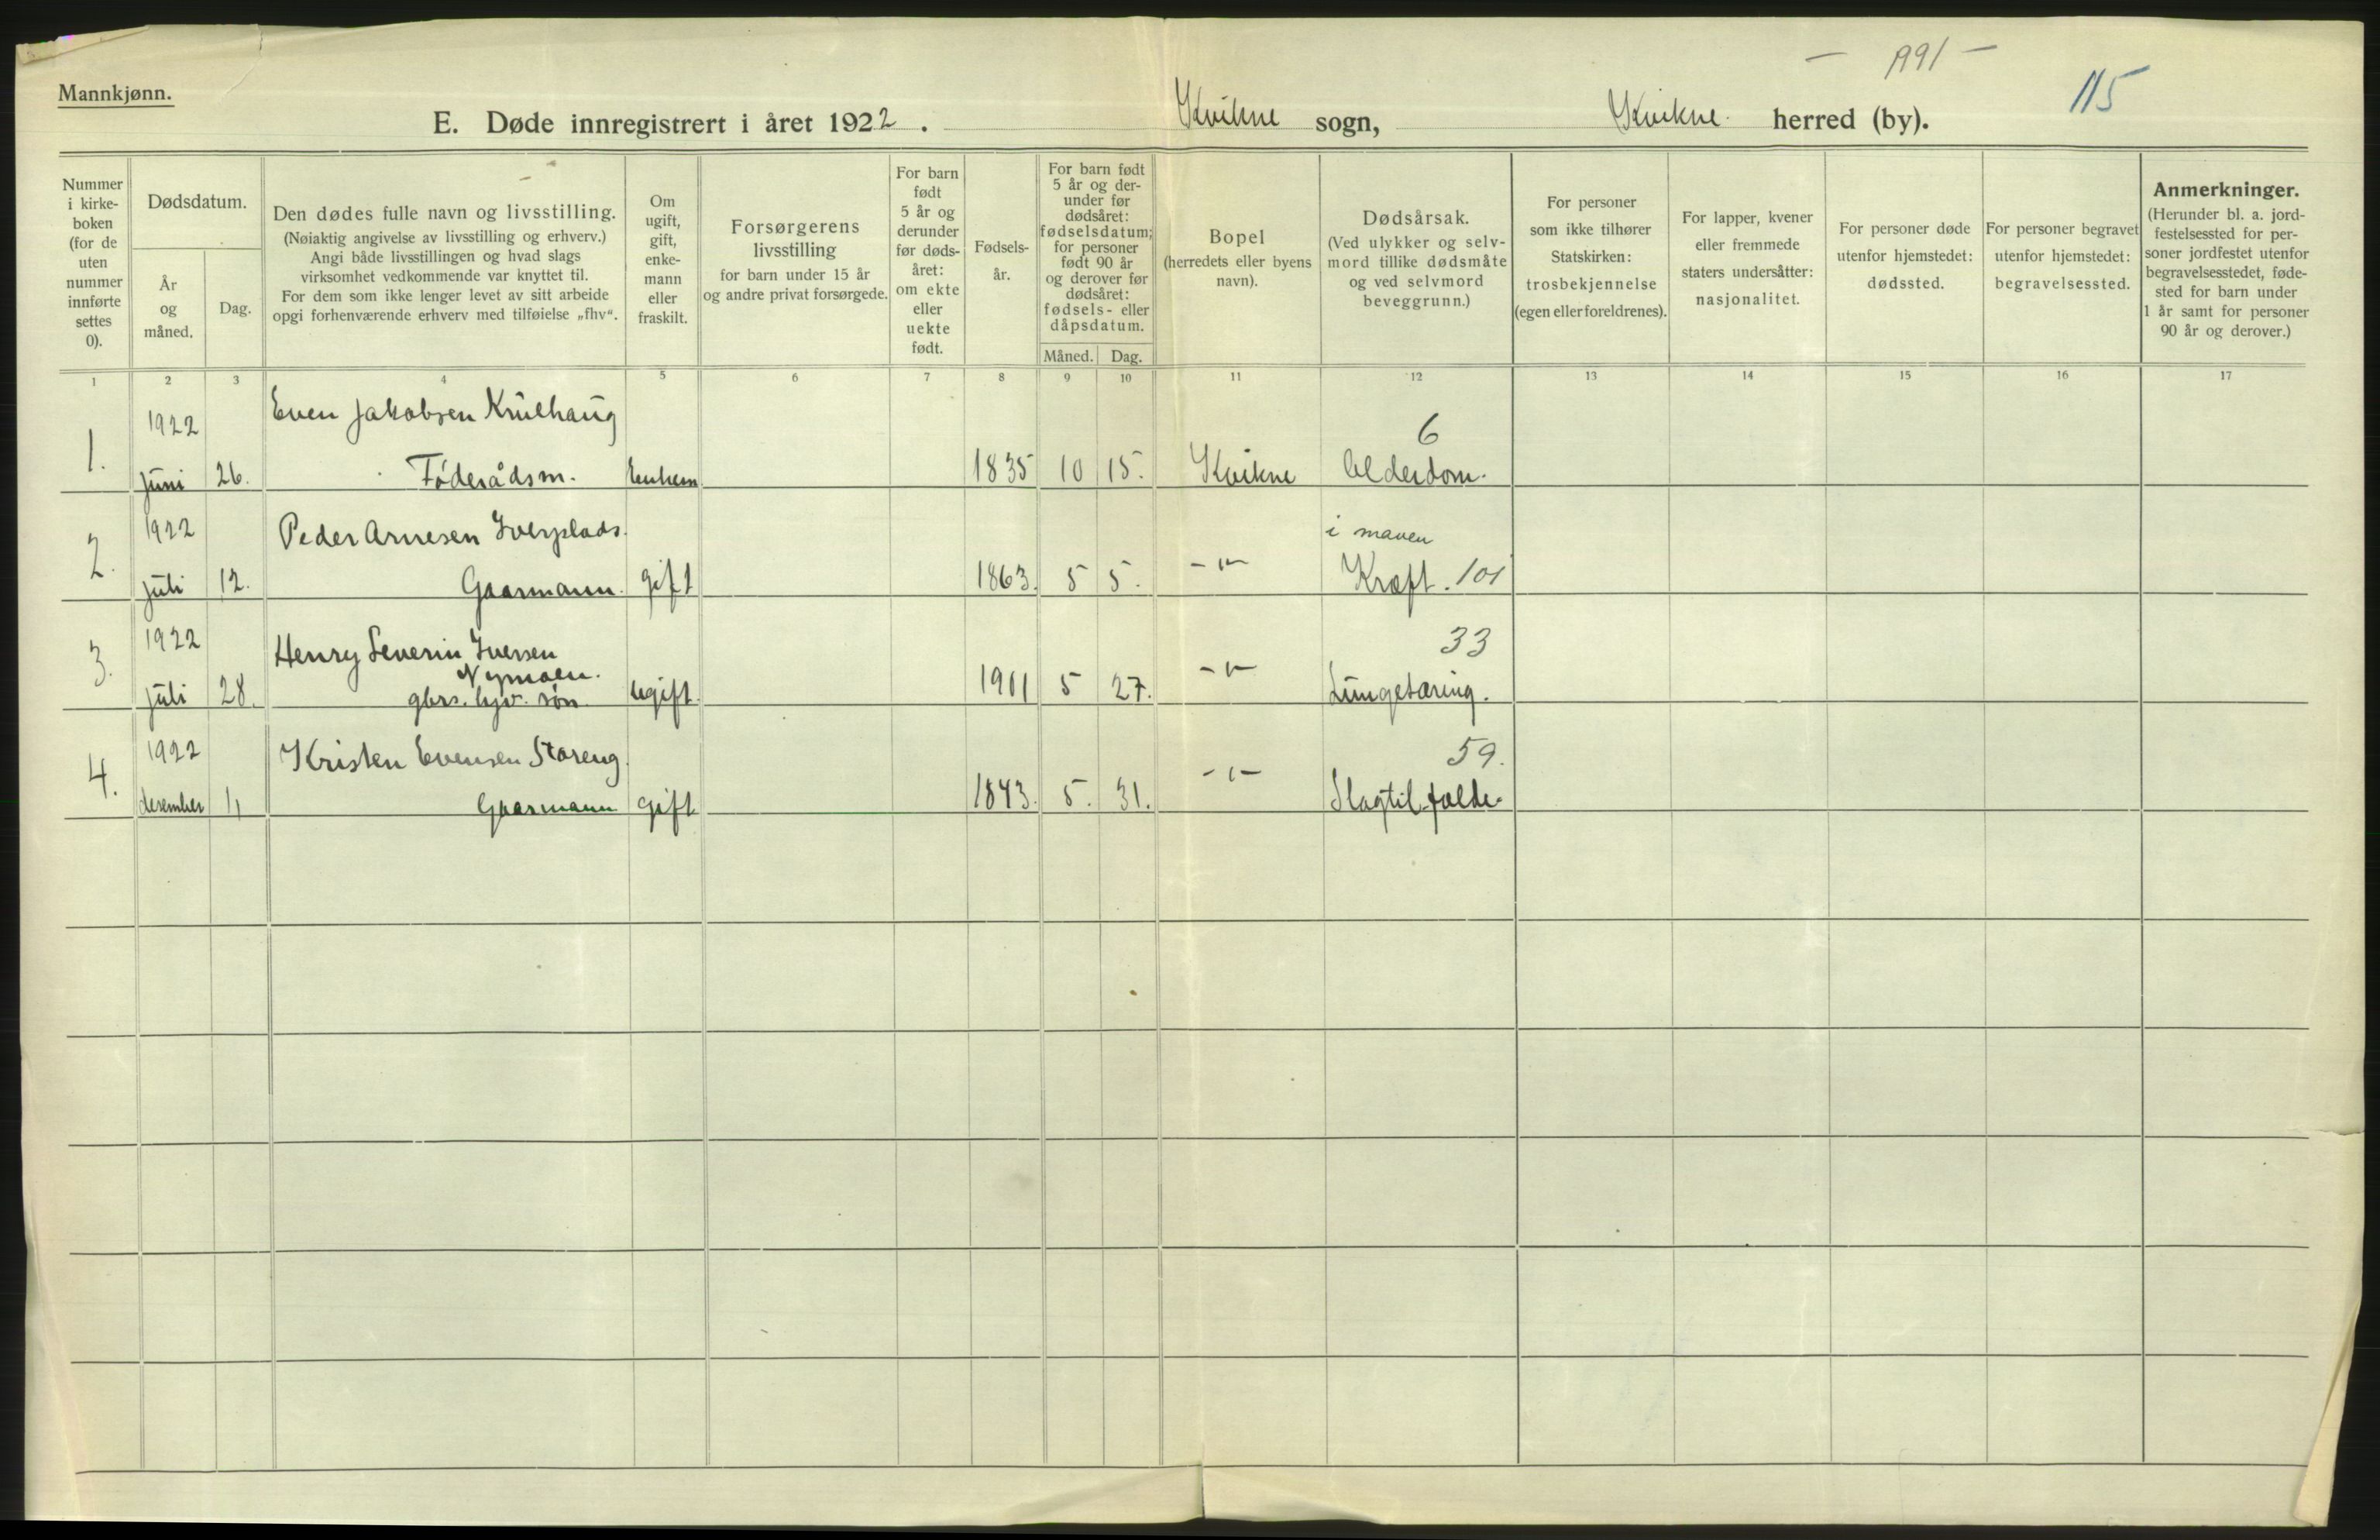 - A91 -
115
Mannkjønn.
E. Døde innregistrert i året 1922. Kvikne sogn, Kvikne herred (by).
Nummer i kirke-boken (for de uten nummer innførte settes 0).
Dødsdatum.
År og måned.
Dag.
Den dødes fulle navn og livsstilling.
(Nøiaktig angivelse av livsstilling og erhverv.)
Angi både livsstillingen og hvad slags
virksomhet vedkommende var knyttet til.
For dem som ikke lenger levet av sitt arbeide
opgi forhenværende erhverv med tilføielse „fhv“.
Om ugift, gift, enke-mann eller fraskilt.
Forsørgerens
livsstilling
for barn under 15 år
og andre privat forsørgede.
For barn født 5 år og derunder før døds-året: om ekte eller uekte født.
Fødsels-år.
For barn født
5 år og der-
under før
dødsåret:
fødselsdatum;
for personer
født 90 år
og derover før
dødsåret:
fødsels- eller
dåpsdatum.
Måned. Dag.
Bopel
(herredets eller byens
navn).
Dødsårsak.
(Ved ulykker og selv-
mord tillike dødsmåte
og ved selvmord
beveggrunn.)
For personer
som ikke tilhører
Statskirken:
trosbekjennelse
(egen eller foreldrenes).
For lapper, kvener
eller fremmede
staters undersåtter:
nasjonalitet.
For personer døde
utenfor hjemstedet:
dødssted.
For personer begravet
utenfor hjemstedet:
begravelsessted.
Anmerkninger.
(Herunder bl. a. jord-
festelsessted for per-
soner jordfestet utenfor
begravelsesstedet, føde-
sted for barn under
1 år samt for personer
90 år og derover.)
1 2 3 4 5 6 7 8 9 10 11 12 13 14 15 16 17
1922 Even Jakobsen Krulhaug 6
1. juni 26. Føderådsm. Enkem 1835 10 15. Kvikne Alderdom.
1922 Peder Arnesen Iverplads. i maven
2. juli 12. Gaarmann. gift 1863. 5 5. -"- Kræft. 101
1922 Henry Severin Iversen 33
Nymoen.
3. juli 28. gbrs. søn ugift. 1901 5 27. -"- Lungetæring.
1922 Kristen Evensen Støreng 59.
4. desember 11 Gaarmann gift 1843. 5. 31. -"- Slagtilfælde.